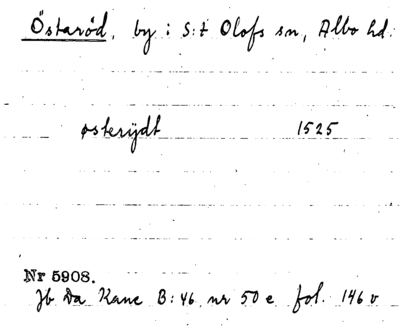 Östaröd, by i S:t Olofs sn, Albo hd.
østerijdt 1525
Nr 5908.
Jb Da Kanc B:46 nr 50 e fol. 146 v